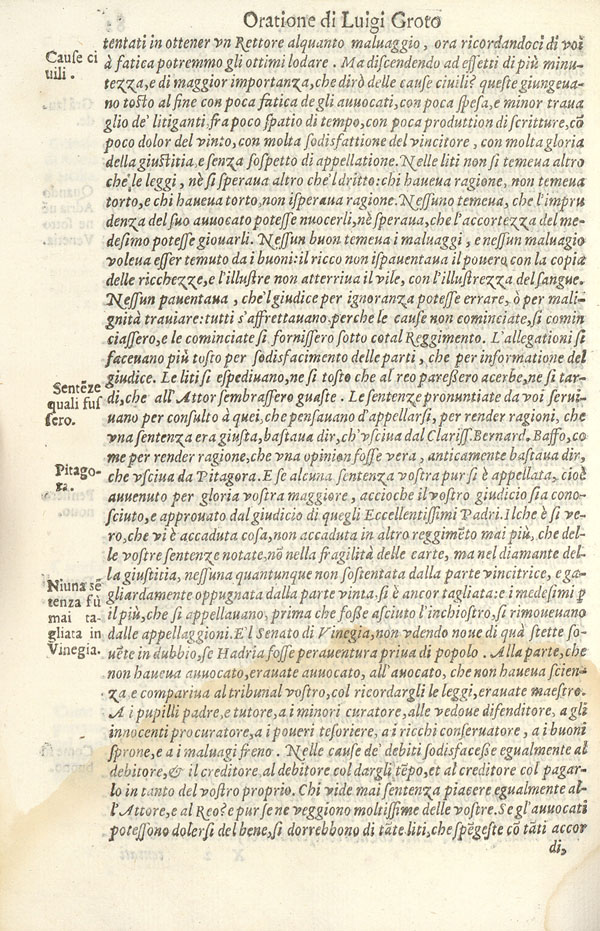 Oratione di Luigi Groto
tentati in ottener vn Rettore alquanto maluaggio, ora ricordandoci di voi
Cause ci
uili.
à fatica potremmo gli ottimi lodare. Ma discendendo ad effetti di più minu-
tezza, e di maggior importanza, che dirò delle cause ciuili? queste giungeua-
no tosto al fine con poca fatica de gli auuocati, con poca spesa, e minor traua
glio de' litiganti, fra poco spatio di tempo, con poca produttion di scritture, cō
poco dolor del vinto, con molta sodisfattione del vincitore, con molta gloria
della giustitia, e senza sospetto di appellatione. Nelle liti non si temeua altro
che le leggi, nè si speraua altro che'l dritto: chi haueua ragione, non temeua
torto, e chi haueua torto, non isperaua ragione. Nessuno temeua, che l'impru
denza del suo auuocato potesse nuocerli, nè speraua, che l'accortezza del me-
desimo potesse giouarli. Nessun buon temeua i maluaggi, e nessun maluagio
voleua esser temuto da i buoni: il ricco non ispauentaua il pouero con la copia
delle ricchezze, e l'illustre non atterriua il vile, con l'illustrezza del sangue.
Nessun pauentaua, che'l giudice per ignoranza potesse errare, ò per mali-
gnità trauiare: tutti s'affrettauano, perche le cause non cominciate, si comin
ciassero, e le cominciate si fornissero sotto cotal Reggimento. L'allegationi si
faceuano più tosto per sodisfacimento delle parti, che per informatione del
giudice. Le liti si espediuano, ne sì tosto che al reo paressero acerbe, ne sì tar-
Sentēze
quali fus
sero.
di, che all'Attor sembrassero guaste. Le sentenze pronuntiate da voi serui-
uano per consulto à quei, che pensauano d'appellarsi, per render ragioni, che
vna sentenza era giusta, bastaua dir, ch'vsciua dal Clariss. Bernard. Baffo, co
me per render ragione, che vna opinion fosse vera, anticamente bastaua dir,
Pitago-
ra.
che vsciua da Pitagora. E se alcuna sentenza vostra pur si è appellata, cioè
auuenuto per gloria vostra maggiore, accioche il vostro giudicio sia cono-
sciuto, e approuato dal giudicio di quegli Eccellentissimi Padri. Ilche è sì ve-
ro, che vi è accaduta cosa, non accaduta in altro reggimēto mai più, che del-
le vostre sentenze notate, nō nella fragilità delle carte, ma nel diamante del-
la giustitia, nessuna quantunque non sostentata dalla parte vincitrice, e ga-
Niuna sē
tenza fù
mai ta-
gliata in
Vinegia.
gliardamente oppugnata dalla parte vinta, si è ancor tagliata: e i medesimi p
il più, che si appellauano, prima che fosse asciuto l'inchiostro, si rimoueuano
dalle appellaggioni. E'l Senato di Vinegia, non vdendo noue di quà stette so-
uēte in dubbio, se Hadria fosse perauentura priua di popolo. Alla parte, che
non haueua auuocato, erauate auuocato, all'auuocato, che non haueua scien-
za e compariua al tribunal vostro, col ricordargli le leggi, erauate maestro.
A i pupilli padre, e tutore, a i minori curatore, alle vedoue difenditore, a gli
innocenti procuratore, a i poueri tesoriere, a i ricchi conseruatore, a i buoni
sprone, e a i maluagi freno. Nelle cause de' debiti sodisfacesse egualmente al
debitore, & il creditore, al debitore col dargli tēpo, et al creditore col pagar-
lo in tanto del vostro proprio. Chi vide mai sentenza piacere egualmente al-
l'Attore, e al Reo? e pur se ne veggiono moltissime delle vostre. Se gl'auuocati
potessono dolersi del bene, si dorrebbono di tāte liti, che spēgeste cō tāti accor
di,